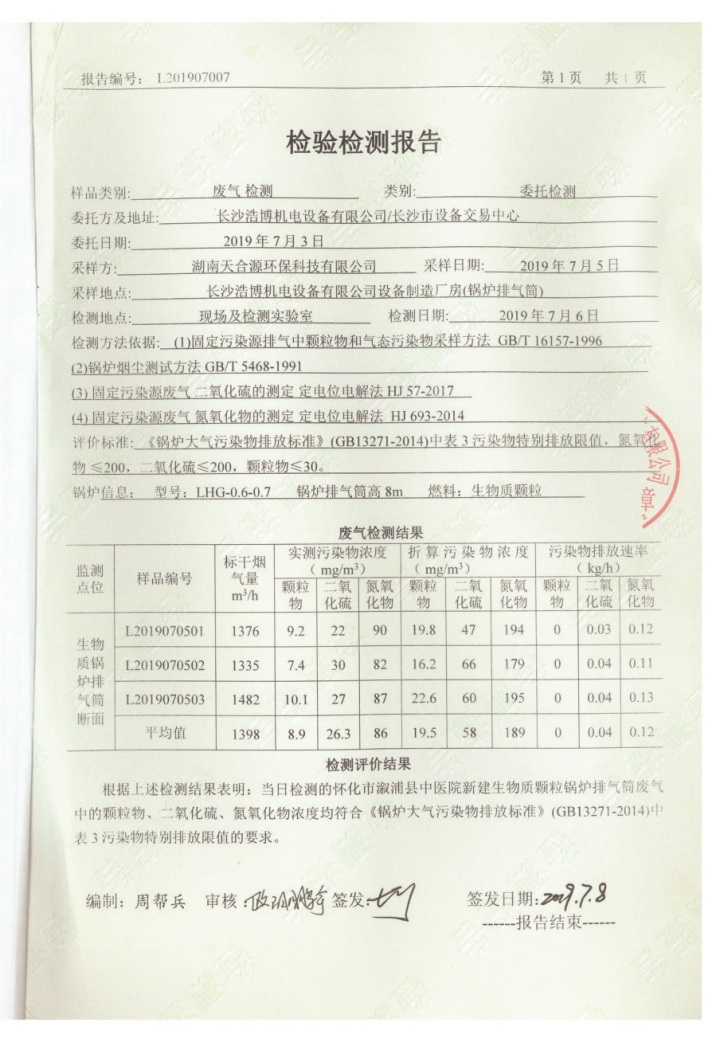 报告编号： L201907007 第 1 页 共 1 页
检验检测报告
样品类别: 废气 检测 类别: 委托检测
委托方及地址: 长沙浩博机电设备有限公司/长沙市设备交易中心
委托日期: 2019 年 7 月 3 日
采样方: 湖南天合源环保科技有限公司 采样日期: 2019 年 7 月 5 日
采样地点: 长沙浩博机电设备有限公司设备制造厂房(锅炉排气筒)
检测地点: 现场及检测实验室 检测日期: 2019 年 7 月 6 日
检测方法依据: (1)固定污染源排气中颗粒物和气态污染物采样方法 GB/T 16157-1996
(2)锅炉烟尘测试方法 GB/T 5468-1991
(3) 固定污染源废气 二氧化硫的测定 定电位电解法 HJ 57-2017
(4) 固定污染源废气 氮氧化物的测定 定电位电解法 HJ 693-2014
评价标准: 《锅炉大气污染物排放标准》(GB13271-2014)中表 3 污染物特别排放限值，氮氧化
物 ≤200，二氧化硫≤200，颗粒物≤30。
锅炉信息： 型号：LHG-0.6-0.7 锅炉排气筒高 8m 燃料：生物质颗粒
限公司
章
废气检测结果
监测点位 样品编号 标干烟气量 m³/h 实测污染物浓度（ mg/m³） 折算污染物浓度（ mg/m³） 污染物排放速率（ kg/h）
颗粒物 二氧化硫 氮氧化物 颗粒物 二氧化硫 氮氧化物 颗粒物 二氧化硫 氮氧化物
生物质锅炉排气筒断面
L2019070501 1376 9.2 22 90 19.8 47 194 0 0.03 0.12
L2019070502 1335 7.4 30 82 16.2 66 179 0 0.04 0.11
L2019070503 1482 10.1 27 87 22.6 60 195 0 0.04 0.13
平均值 1398 8.9 26.3 86 19.5 58 189 0 0.04 0.12
检测评价结果
根据上述检测结果表明：当日检测的怀化市溆浦县中医院新建生物质颗粒锅炉排气筒废气
中的颗粒物、二氧化硫、氮氧化物浓度均符合《锅炉大气污染物排放标准》(GB13271-2014)中
表 3 污染物特别排放限值的要求。
编制：周帮兵 审核： 签发： 签发日期：2019.7.8
------报告结束------